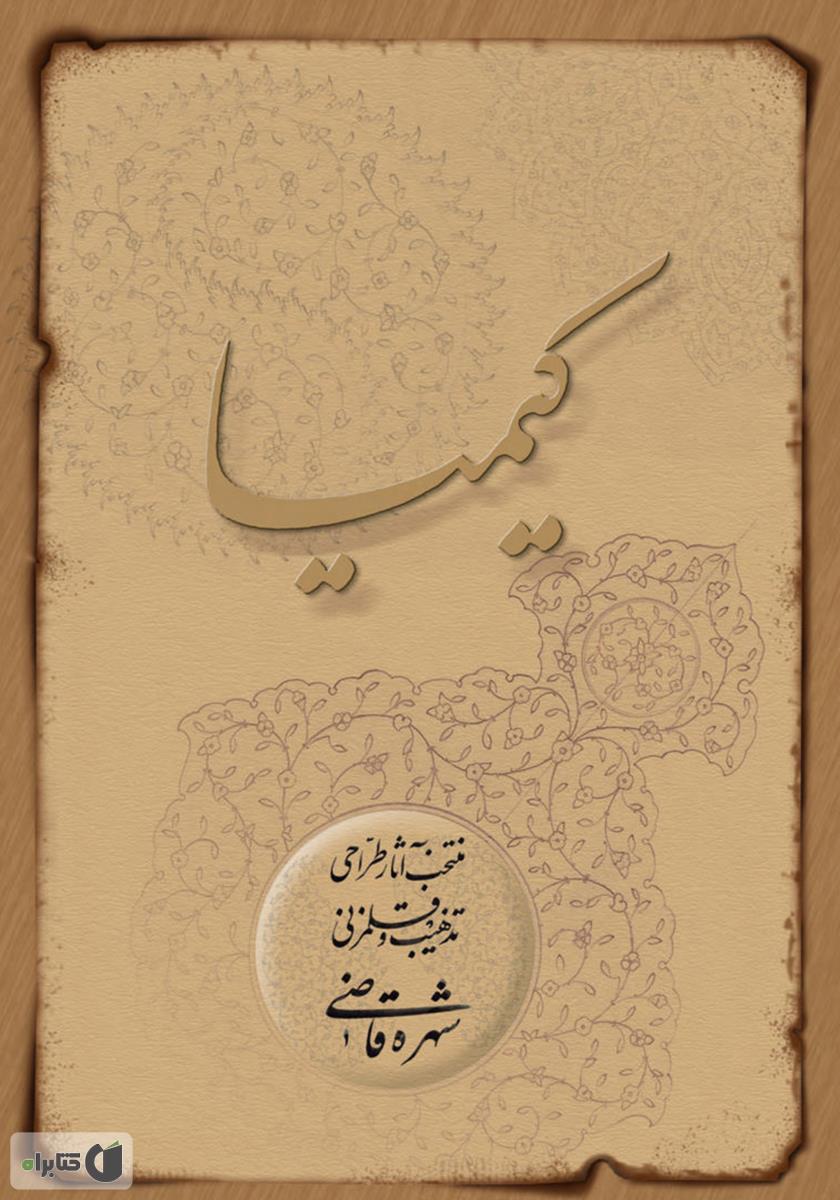 کیمیا
منتخب آثار طراحی
تذهیب و قلمزنی
شهره قاضی
کتابراه